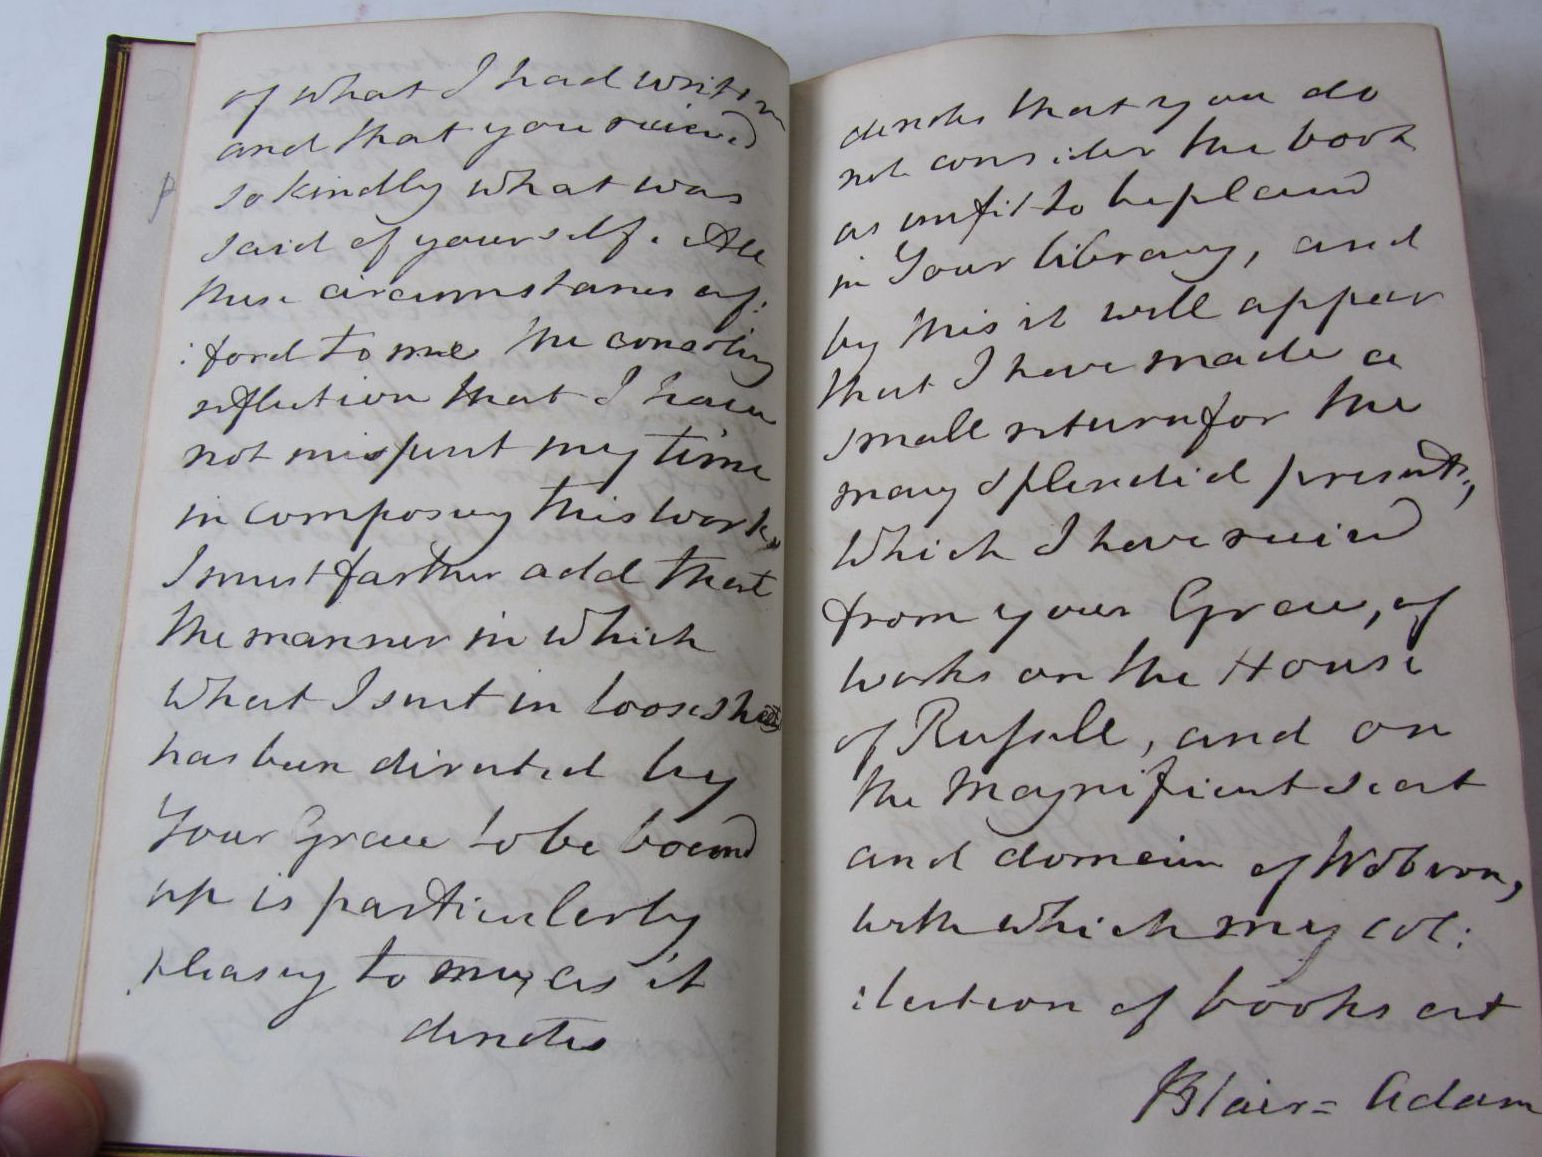 of what I had written
and that you recieved
so kindly what was
said of yourself. All
these circumstances af:
:ford to me the consoling
reflection that I have
not mispent my time
in composing this work.
I must farther add that
the manner in which
what I sent in loose sheets
has been directed by
Your Grace to be bound
up is particularly
pleasing to me, as it
denotes
denotes that you do
not consider the book
as unfit to be placed
in Your library, and
by this it will appear
that I have made a
small return for the
many splendid presents,
which I have recieved
from your Grace, of
works on the House
of Russell, and on
the Magnificent seat
and domain of Woburn,
with which my col:
:lection of books at
Blair = Adam